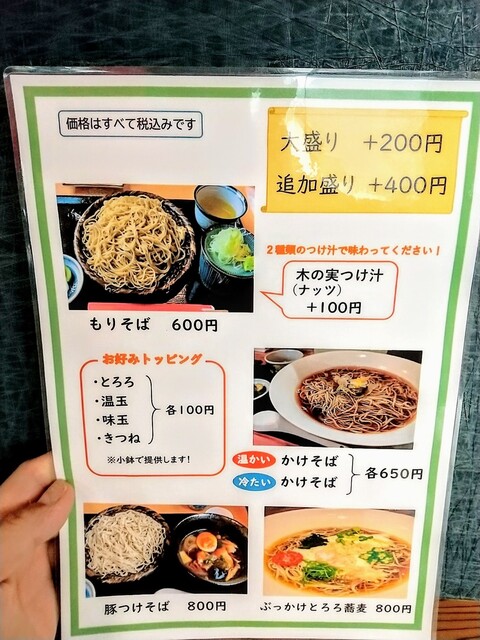 価格はすべて税込みです
大盛り +200円
追加盛り +400円
2種類のつけ汁で味わってください!
木の実つけ汁
(ナッツ)
+100円
もりそば 600円
お好みトッピング
・とろろ
・温玉
・味玉
・きつね
各100円
※小鉢で提供します!
温かい かけそば
冷たい かけそば
各650円
豚つけそば 800円
ぶっかけとろろ蕎麦 800円